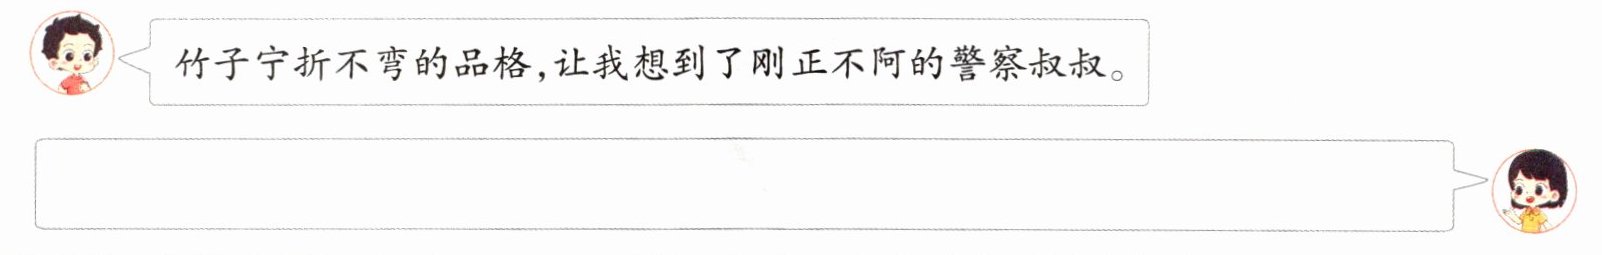 竹子宁折不弯的品格,让我想到了刚正不阿的警察叔叔。